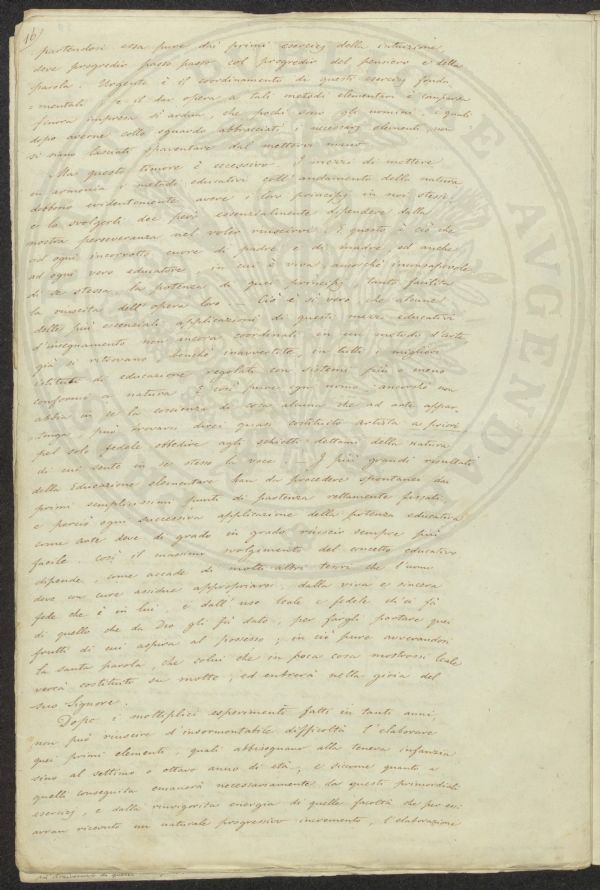 16)
partendosi essa pure dai primi esercizj della intuizione,
deve progredir passo passo col progredir del pensiero e della
parola. Urgente è il coordinamento di questi esercizj fonda
=mentali e il dar opera a tali metodi elementari è comparsa
finora impresa sì ardua, che pochi sono gli uomini, i quali
dopo averne collo sguardo abbracciati i necessarj elementi, non
si siano lasciati spaventare dal mettervi mano.
Ma questo timore è eccessivo. I mezzi di mettere
in armonia i metodi educativi coll'andamento della natura
debbono evidentemente avere i loro principj in noi stessi,
e lo svolgerli dee però essenzialmente dipendere dalla
nostra perseveranza nel voler riuscirvi. E questo è ciò che
ad ogni incorrotto cuore di padre e di madre, ed anche
ad ogni vero educatore in cui è viva, ancorchè inconsapevole
di se stessa, la potenza di quei principj tanto facilita
la riuscita dell'opera loro. — Ciò è sì vero che alcune
delle più essenziali applicazioni di questi mezzi educativi
d'insegnamento non ancora coordinati in un metodo d'arte
già si ritrovano benchè inavvertite, in tutti i migliori
istituti di educazione regolati con sistemi più o meno
conformi a natura. E così pure ogni uomo ancorchè non
abbia in se la coscienza di cosa alcuna che ad arte appar
=tenga può trovarsi direi quasi costituito artista a priori
pel solo fedele obbedire agli schietti dettami della natura
di cui sente in se stesso la voce. I più grandi risultati
della Educazione elementare han da procedere spontanei da
primi semplicissimi punti di partenza rettamente fissati,
e perciò ogni successiva applicazione della potenza educatrice
come arte deve di grado in grado riuscir sempre più
facile. Così il massimo svolgimento del concetto educativo
dipende, come accade di molti altri tesori che l'uomo
deve con cure assidue appropriarsi, dalla viva e sincera
fede che è in lui, e dall'uso leale e fedele ch'ei fa
di quello che da Dio gli fu dato, per fargli portare quei
frutti di cui aspira al possesso; in ciò pure avverandosi
la santa parola, che colui che in poca cosa mostrossi leale
verrà costituito su molto, ed entrerà nella gioia del
suo Signore.
Dopo i moltiplici esperimenti fatti in tanti anni,
non può riuscire d'insormontabile difficoltà l'elaborare
quei primi elementi, quali abbisognano alla tenera infanzia
sino al settimo o ottavo anno di età; e siccome quanto a
quelli conseguita emanerà necessariamente da questi primordiali
esercizj, e dalla rinvigorita energia di quelle facoltà che per essi
avran ricevuto un naturale progressivo incremento, l'elaborazione